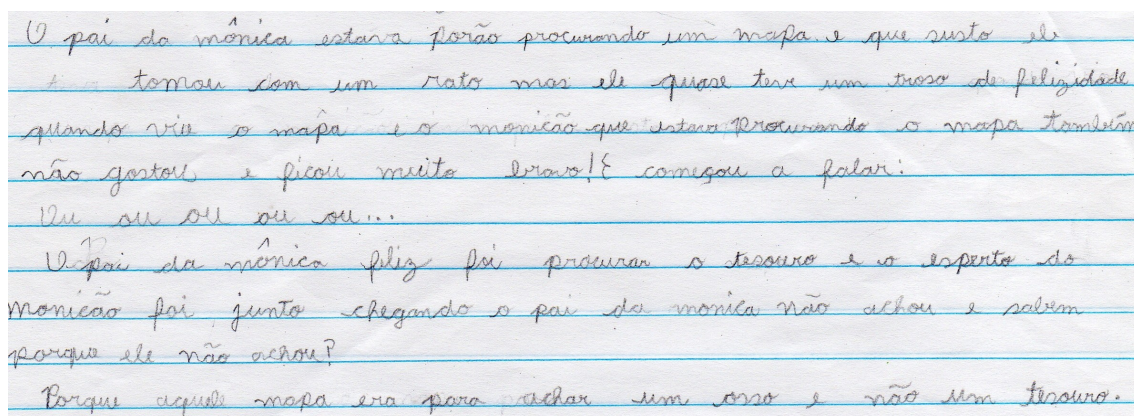 O pai da mônica estava porão procurando um mapa. e que susto ele
tomou com um rato mas ele quase teve um troso de felizidade
quando viu o mapa e o monicão que estava procurando o mapa também
não gostou e ficou muito bravo! E começou a falar:
Ou ou ou ou ou...
O pai da mônica feliz foi procurar o tesouro e o esperto do
monicão foi junto chegando o pai da monica não achou e sabem
porque ele não achou?
Porque aquele mapa era para achar um osso e não um tesouro.